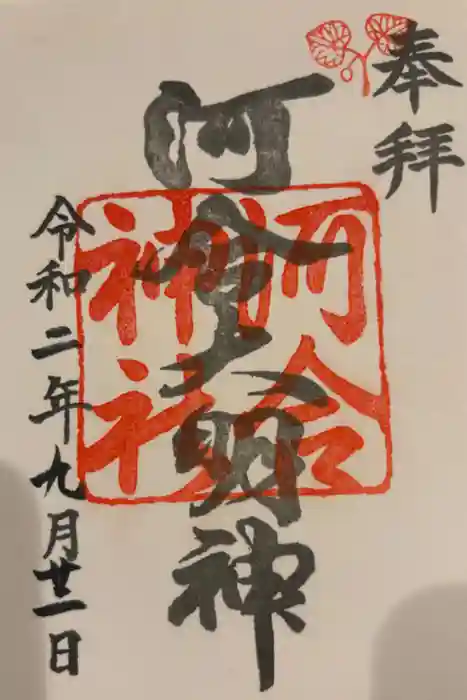 奉拝
河會大明神
河合
神社
令和二年九月廿一日